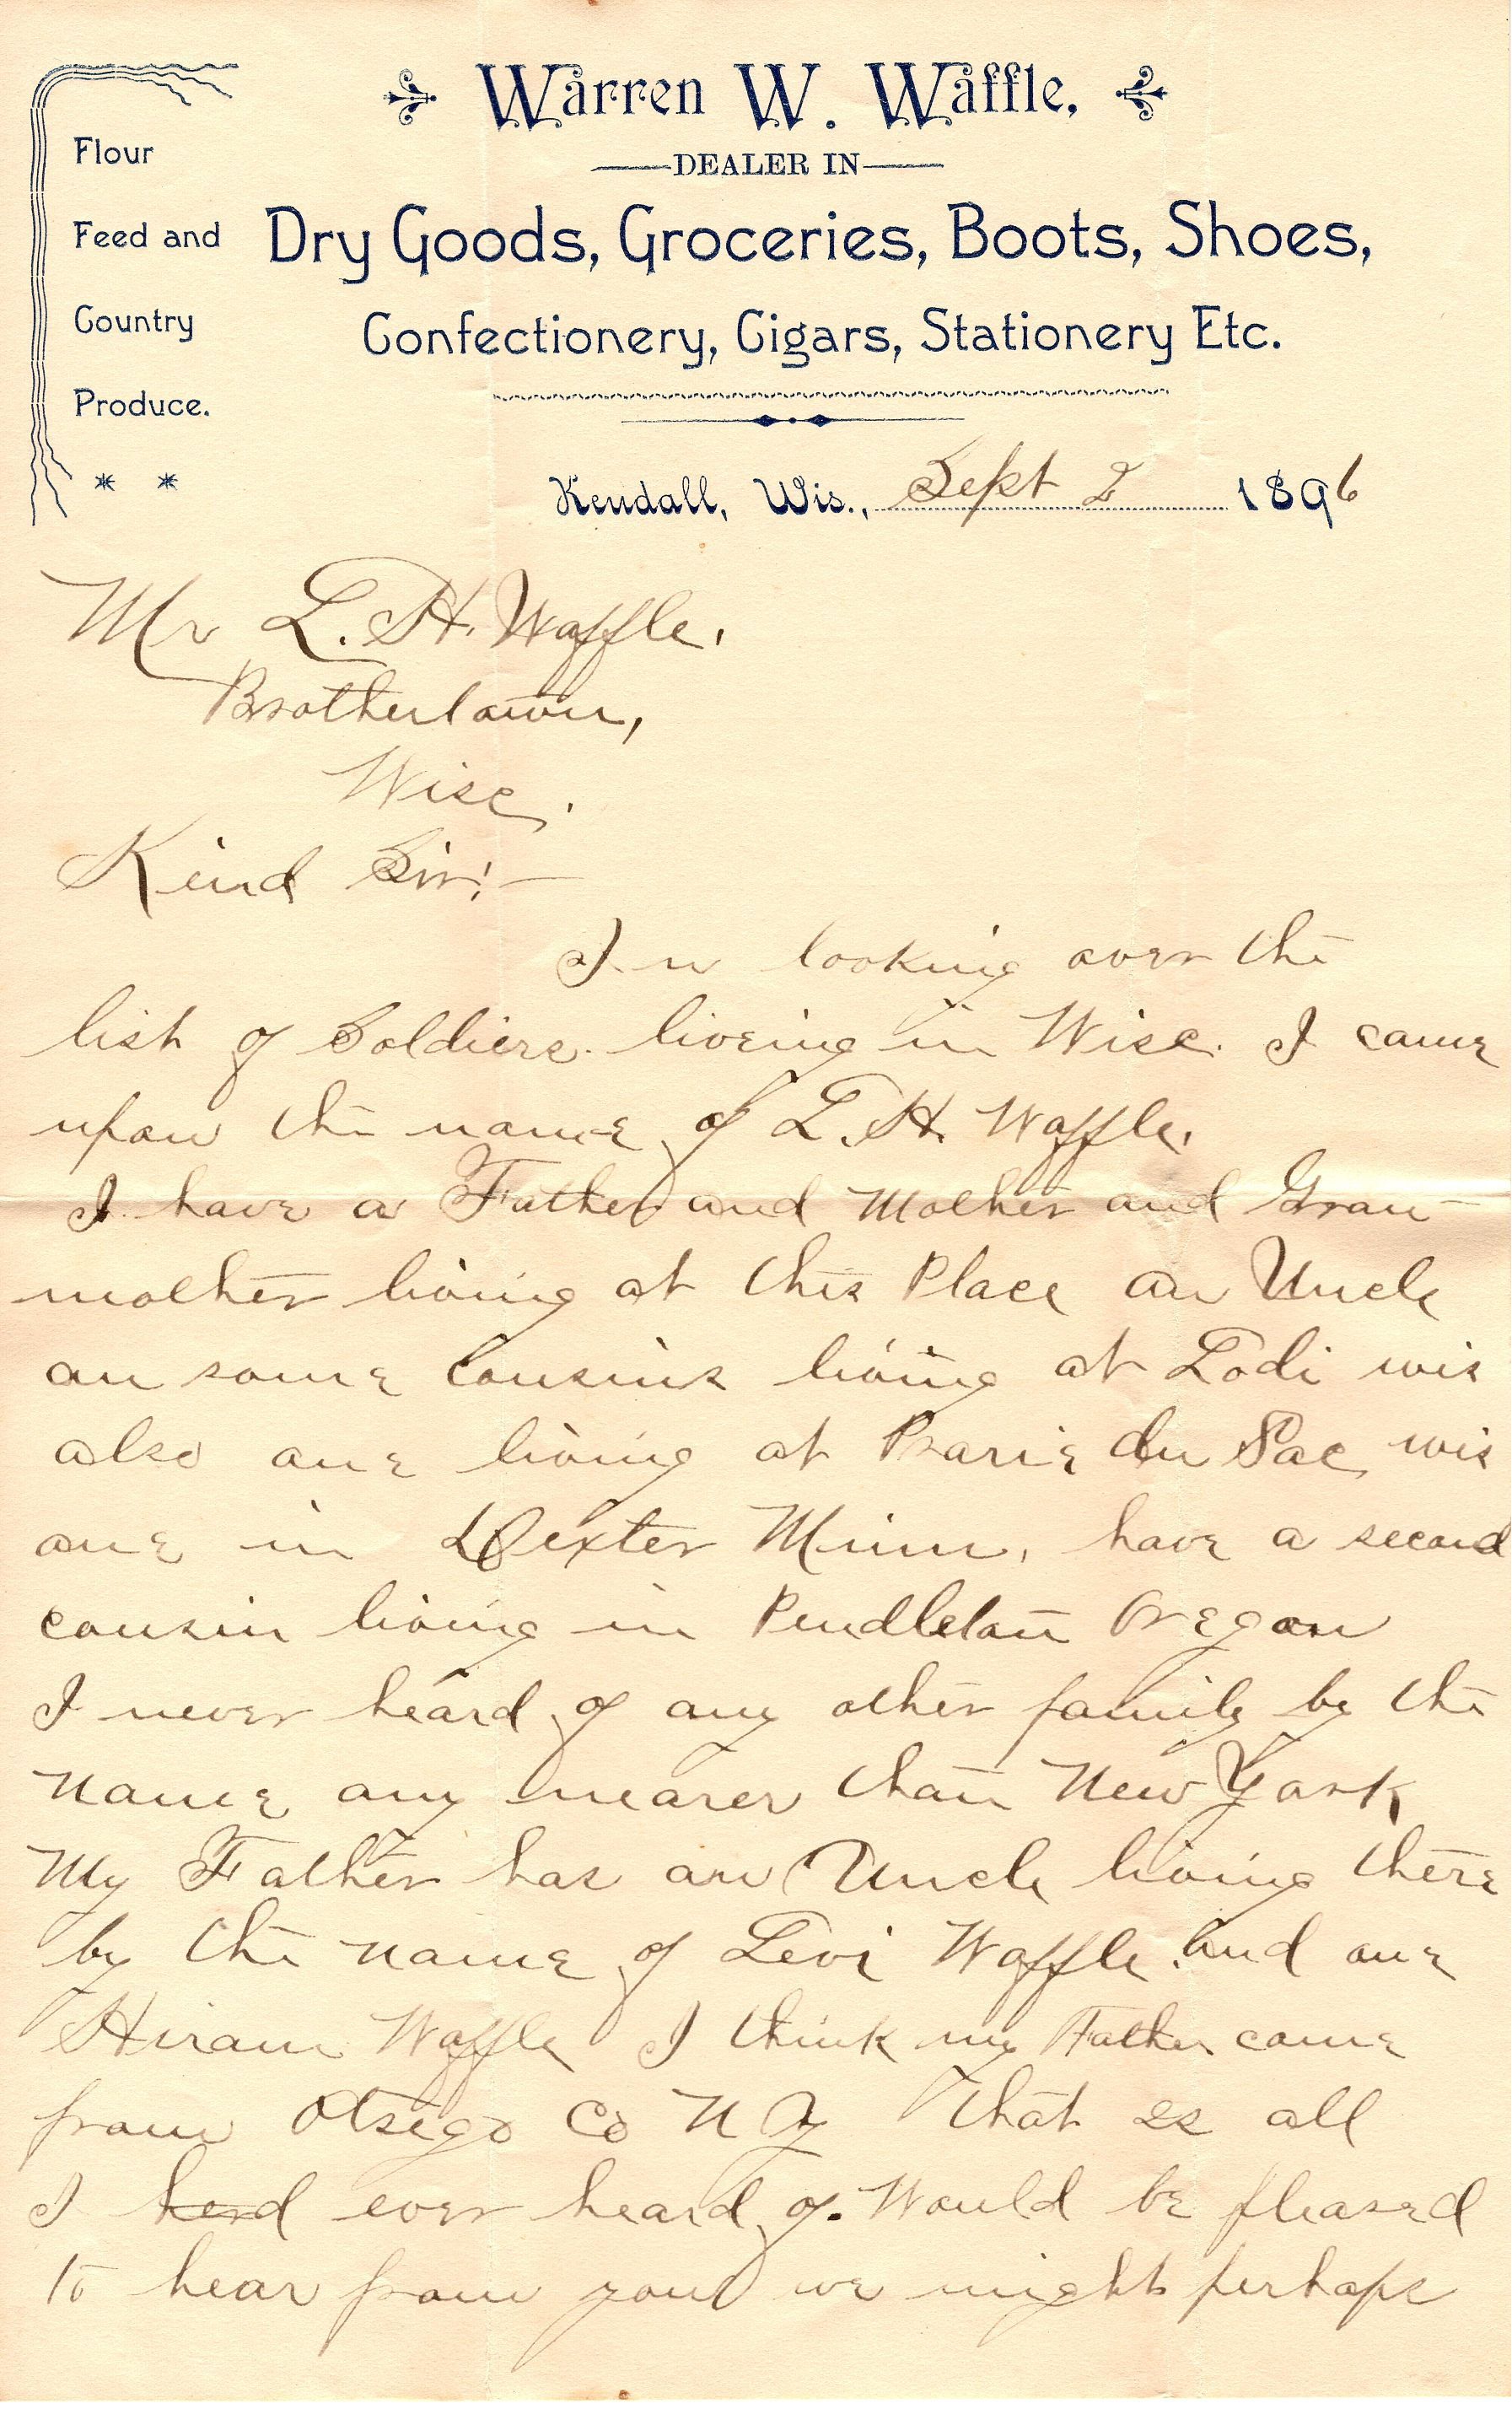 Warren W. Waffle,
DEALER IN
Flour
Feed and
Country
Produce.
* *
Dry Goods, Groceries, Boots, Shoes,
Confectionery, Cigars, Stationery Etc.
Kendall, Wis., Sept 2 1896
Mr L. H. Waffle.
Brothertown,
Wisc.
Kind Sir:—
In looking over the
list of Soldiers. liveing in Wisc. I came
upon the name of L. H. Waffle.
I have a Father and Mother and Gran-
mother living at this Place an Uncle
an some Cousins living at Lodi wis
also one living at Prarie du Sac wis
one in Dexter Minn, have a second
cousin living in Pendleton Oregon
I never heard of any other family by the
name any nearer than New York
My Father has an Uncle living there
by the name of Levi Waffle. and one
Hiram Waffle I think my Father came
from Otsego Co N Y That is all
I herd ever heard of. Would be pleased
to hear from you we might perhaps